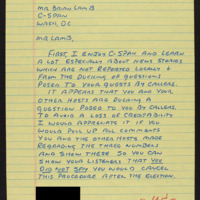 MR BRIAN LAMB
C-SPAN
WASH, DC
MR LAMB,
FIRST, I ENJOY C-SPAN AND LEARN
A LOT ESPECIALLY ABOUT NEWS STORIES
WHICH ARE NOT REPORTED LOCALLY &
FROM THE DUCKING OF QUESTIONS
POSED TO YOUR GUESTS BY CALLERS.
IT APPEARS THAT YOU AND YOUR
OTHER HOSTS ARE DUCKING A
QUESTION POSED TO YOU BY CALLERS.
TO AVOID A LOSS OF CREDITABILITY
I WOULD APPRECIATE IT IF YOU
WOULD PULL UP ALL COMMENTS
YOU AND THE OTHER HOSTS MADE
REGARDING THE THREE NUMBERS
AND SHOW THESE SO YOU CAN
SHOW YOUR LISTENERS THAT YOU
DID NOT SAY YOU WOULD CANCEL
THIS PROCEDURE AFTER THE ELECTION.